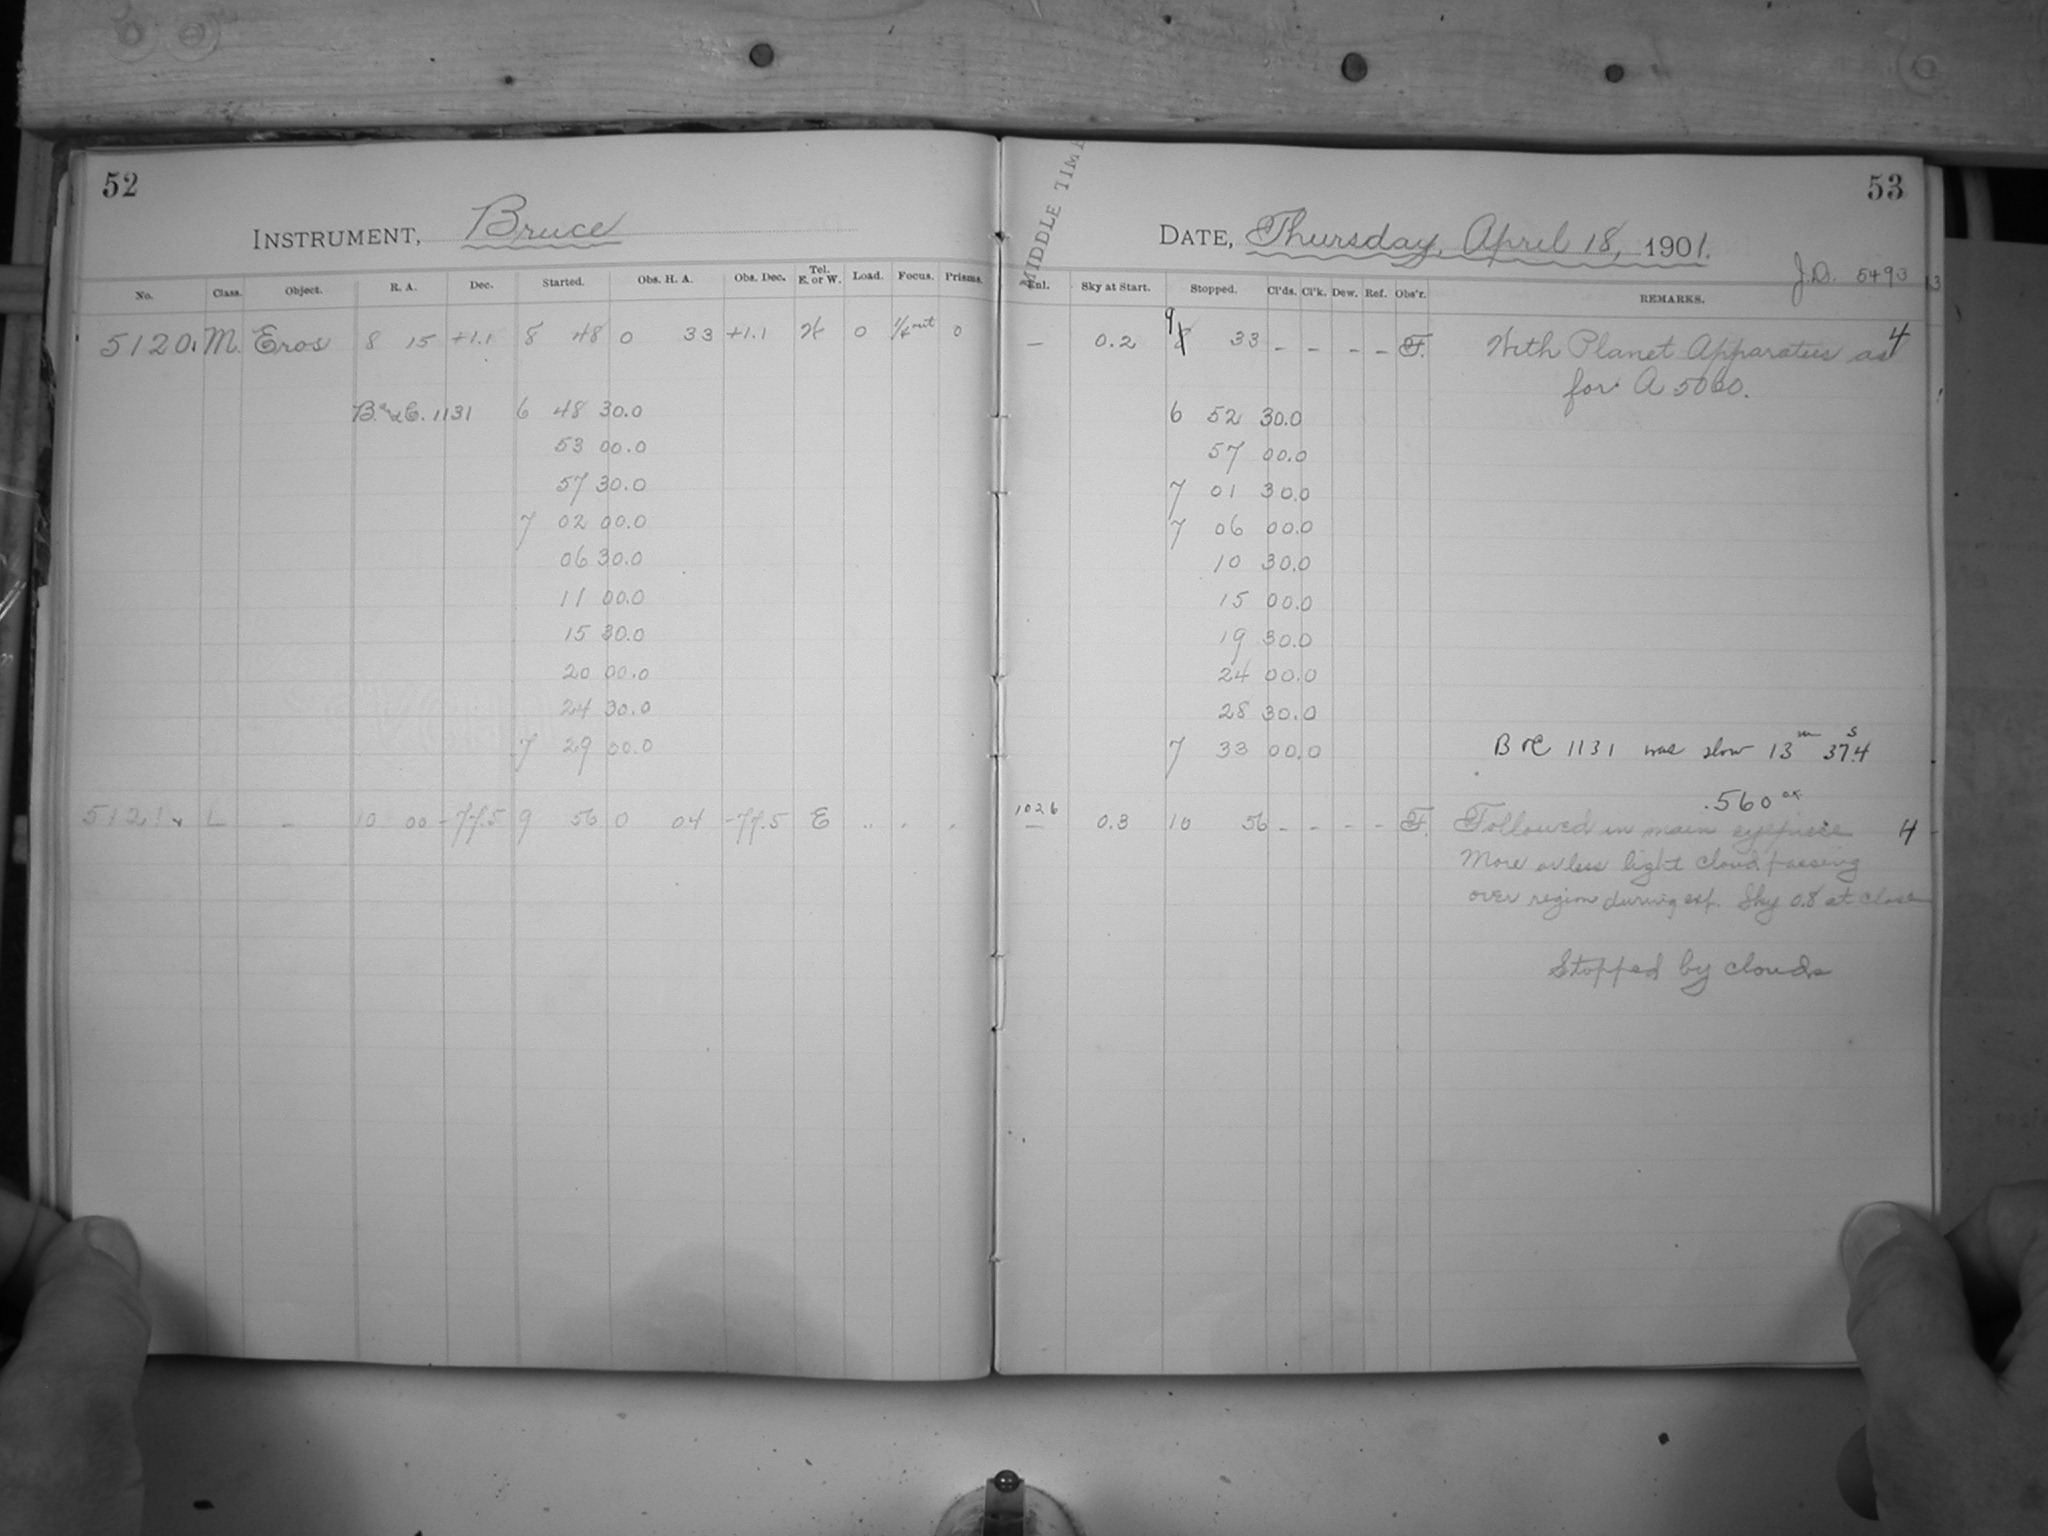 52
INSTRUMENT, Bruce
No. Class. Object. R. A. Dec. Started. Obs. H. A. Obs. Dec. Tel. E. or W. Load. Focus. Prisms.
5120 M. Eros 8 15 +1.1 8 48 0 33 +1.1 0 1/4 out 0
B. & C. 1131 6 48 30.0
53 00.0
57 30.0
7 02 00.0
06 30.0
11 00.0
15 30.0
20 00.0
24 30.0
7 29 00.0
5121 L - 10 00 -77.5 9 56 0 04 -77.5 E " " "
53
MIDDLE TIME
DATE, Thursday, April 18, 1901.
J.D. 5493
Enl. Sky at Start. Stopped. Cl'ds. Cl'k. Dew. Ref. Obs'r. REMARKS.
— 0.2 9 33 - - - - F. With Planet Apparatus as 4
for A 5060.
6 52 30.0
57 00.0
7 01 30.0
7 06 00.0
10 30.0
15 00.0
19 30.0
24 00.0
28 30.0
7 33 00.0 B & C 1131 was slow 13m 37.4s
.560
1026
— 0.3 10 56 - - - - F. Followed in main eyepiece 4
More or less light cloud passing
over region during exp. Sky 0.8 at close
Stopped by clouds